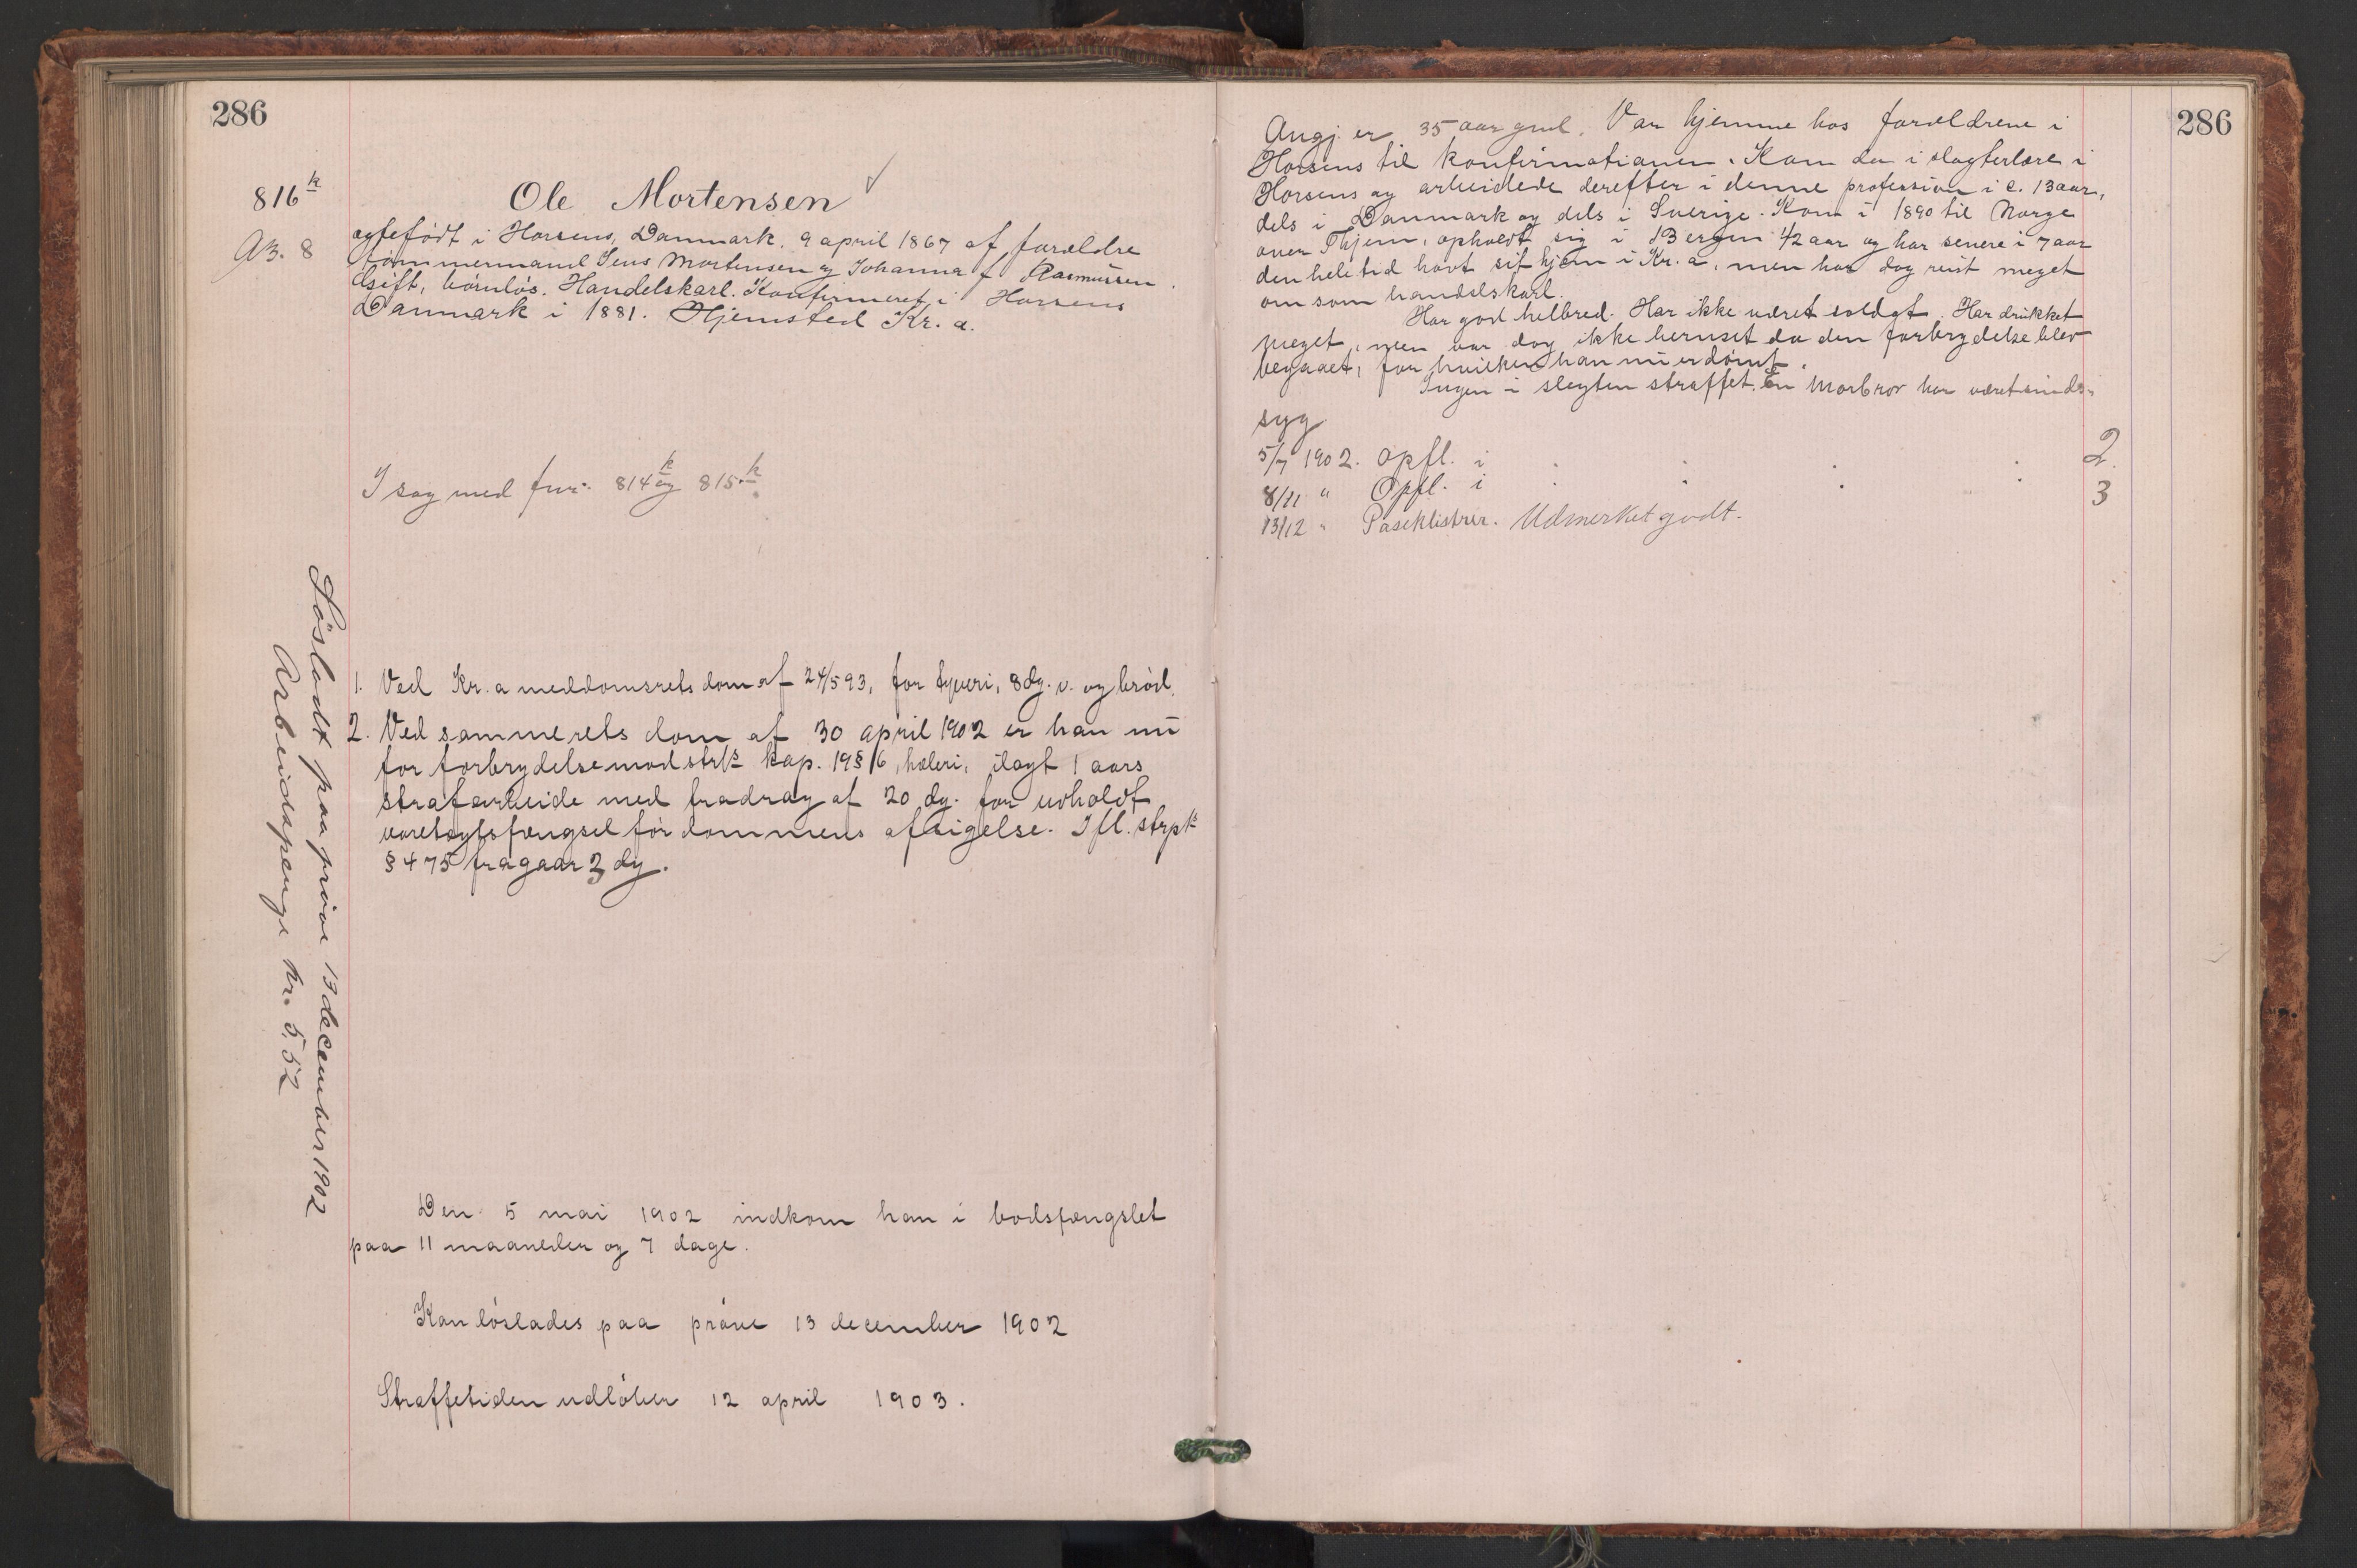 286
816k
Ole Mortensen
A3. 8
egtefödt i Horsens, Danmark, 9 april 1867 af forældre
tömmermand Jens Mortensen og Johanna f. Rasmussen.
Gift, börnlös. Handelskarl. Konfirmeret i Horsens
Danmark i 1881. Hjemsted Kr. a.
I sag med fnr. 814k og 815k.
1. Ved Kr. a meddomsrets dom af 24/5 93, for tyveri, 8 dg. v. og bröd.
2. Ved samme rets dom af 30 april 1902 er han nu
for forbrydelse mod strk kap. 19 § 16, hæleri, ilagt 1 aars
strafarbeide med fradrag af 20 dg. for udholdt
varetægtsfængsel för dommens afsigelse. Ifl. strpk
§ 475 fragaar 3 dg.
Den 5 mai 1902 indkom han i bodsfængslet
paa 11 maaneder og 7 dage.
Kan löslades paa pröve 13 december 1902
Straffetiden udlöber 12 april 1903.
Lösladt paa pröve 13 december 1902
Arbeidspenge kr. 5,52
286
Angj. er 35 aar gml. Var hjemme hos forældrene i
Horsens til konfirmationen. Kom da i slagterlære i
Horsens og arbeidede derefter i denne profession i c. 13 aar,
dels i Danmark og dels i Sverige. Kom i 1890 til Norge
over Thjem, opholdt sig i Bergen 1/2 aar og har senere i 7 aar
den hele tid havt sit hjem i Kr. a, men har dog reist meget
om som handelskarl.
Har god helbred. Har ikke været soldat. Har drukket
meget, men var dog ikke beruset da den forbrydelse blev
begaaet, for hvilken han nu er dömt.
Ingen i slegten straffet. En Morbror har været sinds-
syg
5/7 1902. Opfl. i . . . . 2.
8/11 " Opfl. i . . . . 3
13/12 " Udmerket godt.